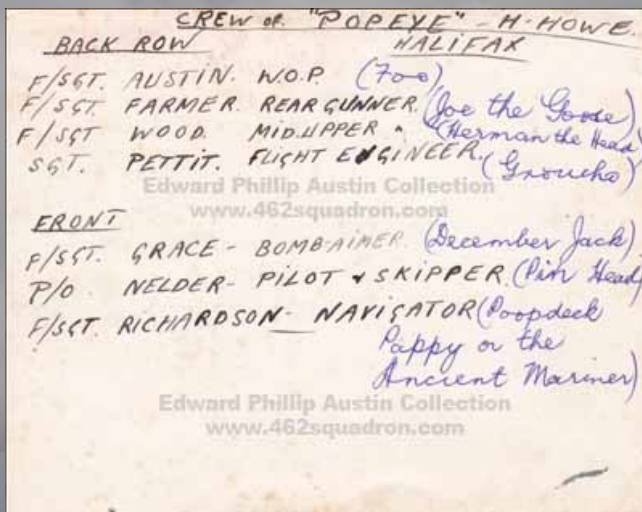 CREW OF "POPEYE" - H-HOWE.
BACK ROW HALIFAX
F/SGT. AUSTIN. W.O.P. (Foo)
F/SGT. FARMER REAR GUNNER. (Joe the Goose)
F/SGT WOOD. MID.UPPER " (Herman the Head
SGT. PETTIT. FLIGHT ENGINEER. (Groucho)
Edward Phillip Austin Collection
www.462squadron.com
FRONT
F/SGT. GRACE - BOMB-AIMER. (December Jack)
P/O NELDER - PILOT & SKIPPER. (Pin Head)
F/SGT. RICHARDSON - NAVIGATOR (Poopdeck
Pappy or the
Ancient Mariner)
Edward Phillip Austin Collection
www.462squadron.com